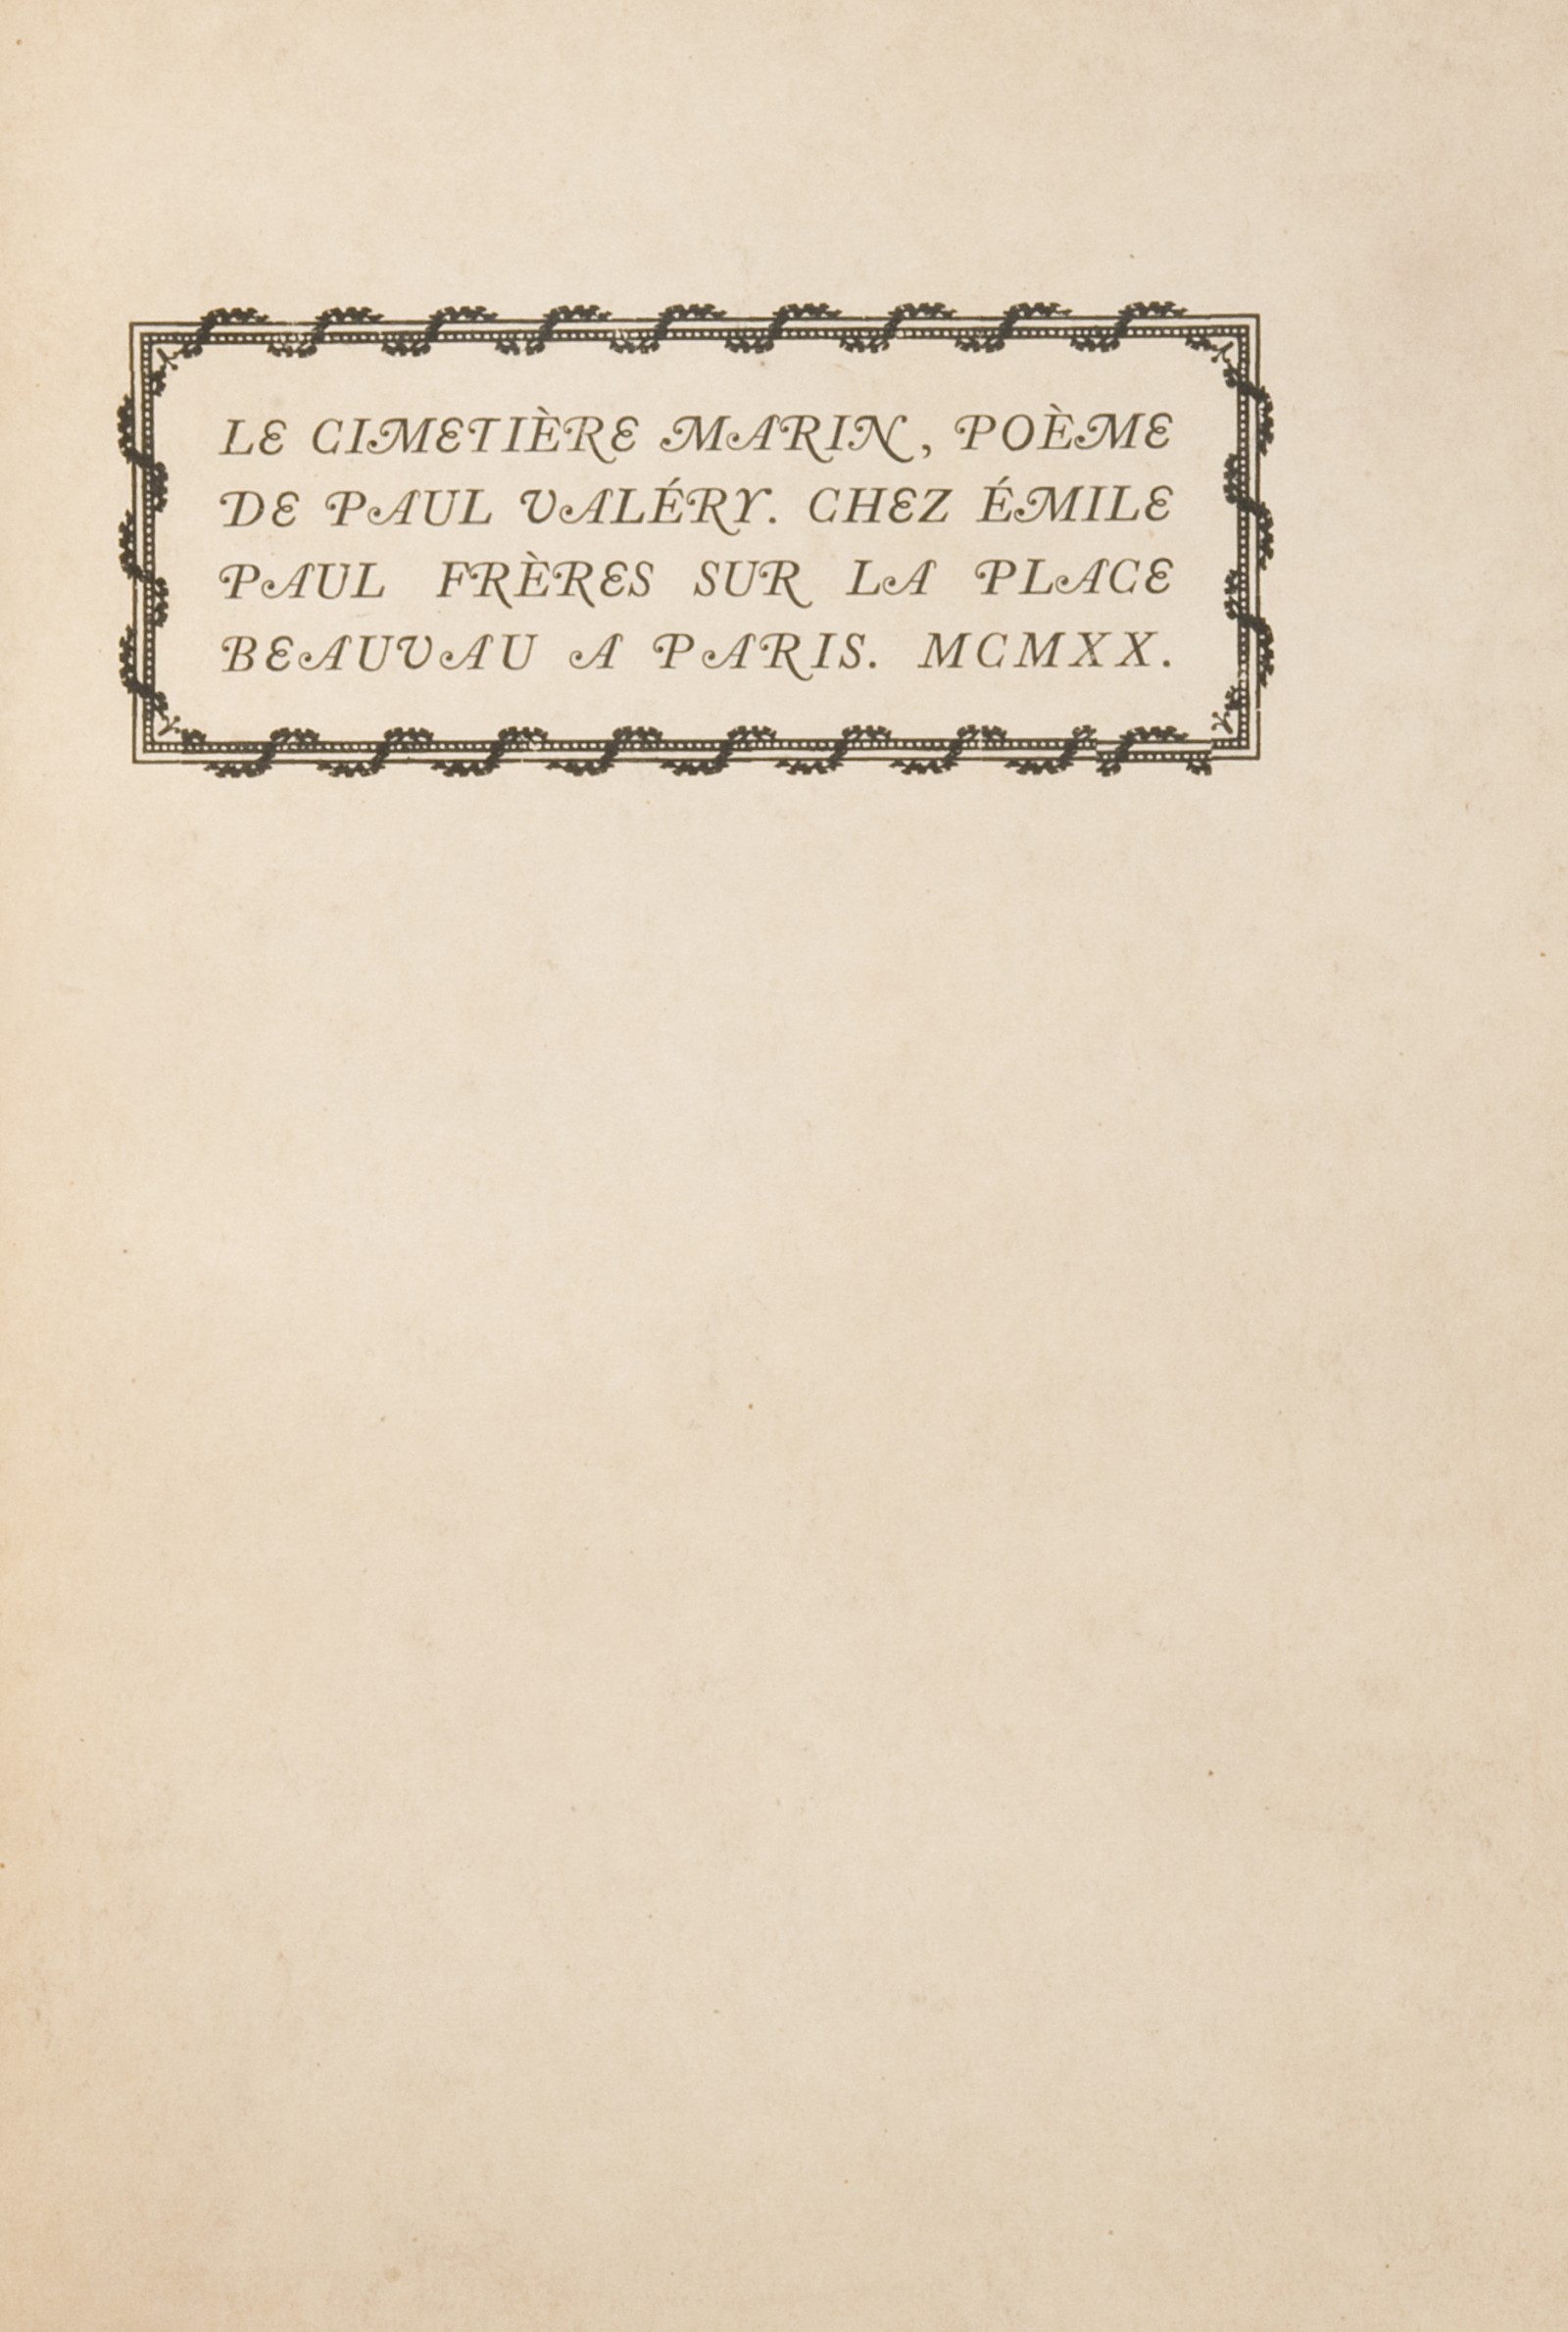 LE CIMETIÈRE MARIN, POÈME
DE PAUL VALÉRY. CHEZ ÉMILE
PAUL FRÈRES SUR LA PLACE
BEAUVAU A PARIS. MCMXX.